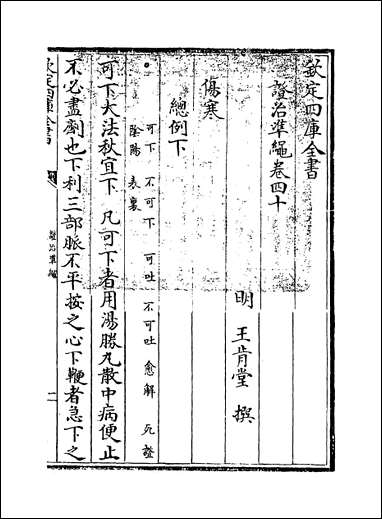 欽定四庫全書
證治準繩卷四十
明 王肯堂 撰
傷寒
總例下
可下 不可下 可吐 不可吐 愈解 死證
陰陽 表裏
可下大法秋宜下 凡可下者用湯勝九散中病便止
不必盡劑也下利三部脈不平按之心下鞕者急下之
欽定四庫全書
證治準繩
二